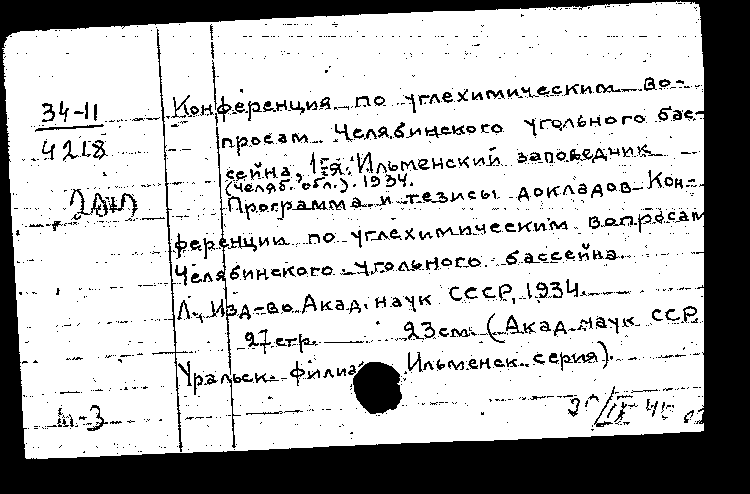 34-11
4218
Конференция по углехимическим во-
просам Челябинского угольного бас-
сейна, 1-я. Ильменский заповедник
(Челяб. обл.). 1934.
Программа и тезисы докладов Кон-
ференции по углехимическим вопросам
Челябинского угольного бассейна.
Л., Изд-во Акад. наук СССР, 1934.
27 стр. 23 см. (Акад. наук ССР
Уральск. филиа Ильменск. серия).
т-3